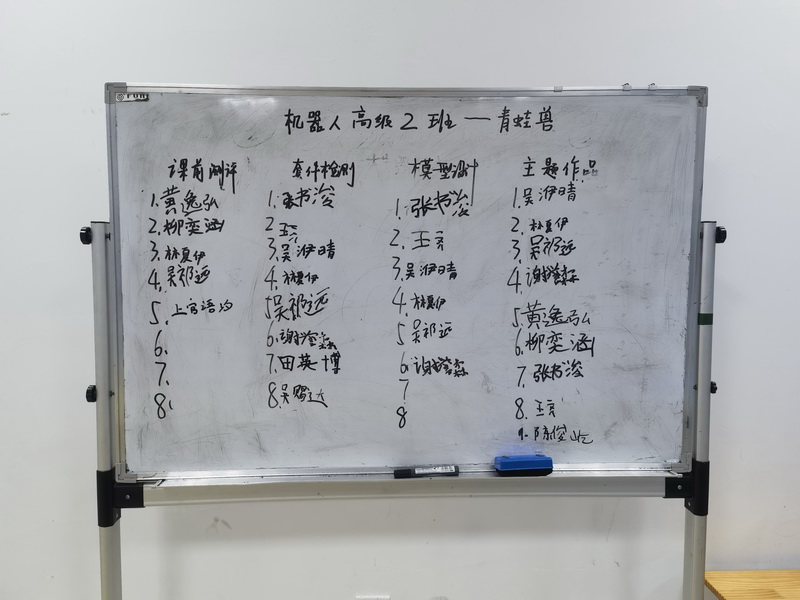 机器人高级2班——青蛙兽
课前测评
1.黄逸弘
2.柳奕涵
3.林夏伊
4.吴祁远
5.上官语均
6.
7.
8.
套件检测
1.张书浚
2.王亮
3.吴洢晴
4.林夏伊
5.吴祁远
6.谢淦森
7.田英博
8.吴赐达
模型设计
1.张书浚
2.王亮
3.吴洢晴
4.林夏伊
5.吴祁远
6.谢淦森
7
8
主题作品
1.吴洢晴
2.林夏伊
3.吴祁远
4.谢淦森
5.黄逸弘
6.柳奕涵
7.张书浚
8.王亮
9.陈俊屹